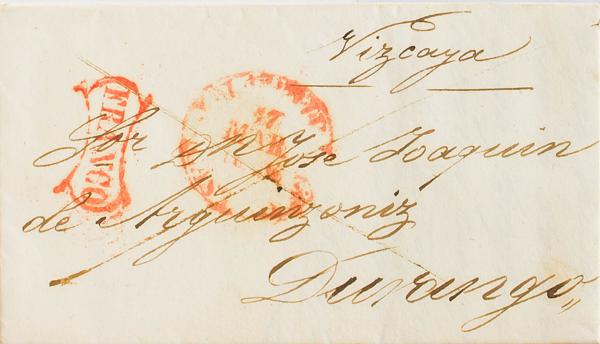 Vizcaya
FRANCO
17
Sor Dn Jose Joaquin
de Arguinzoniz
Durango,,